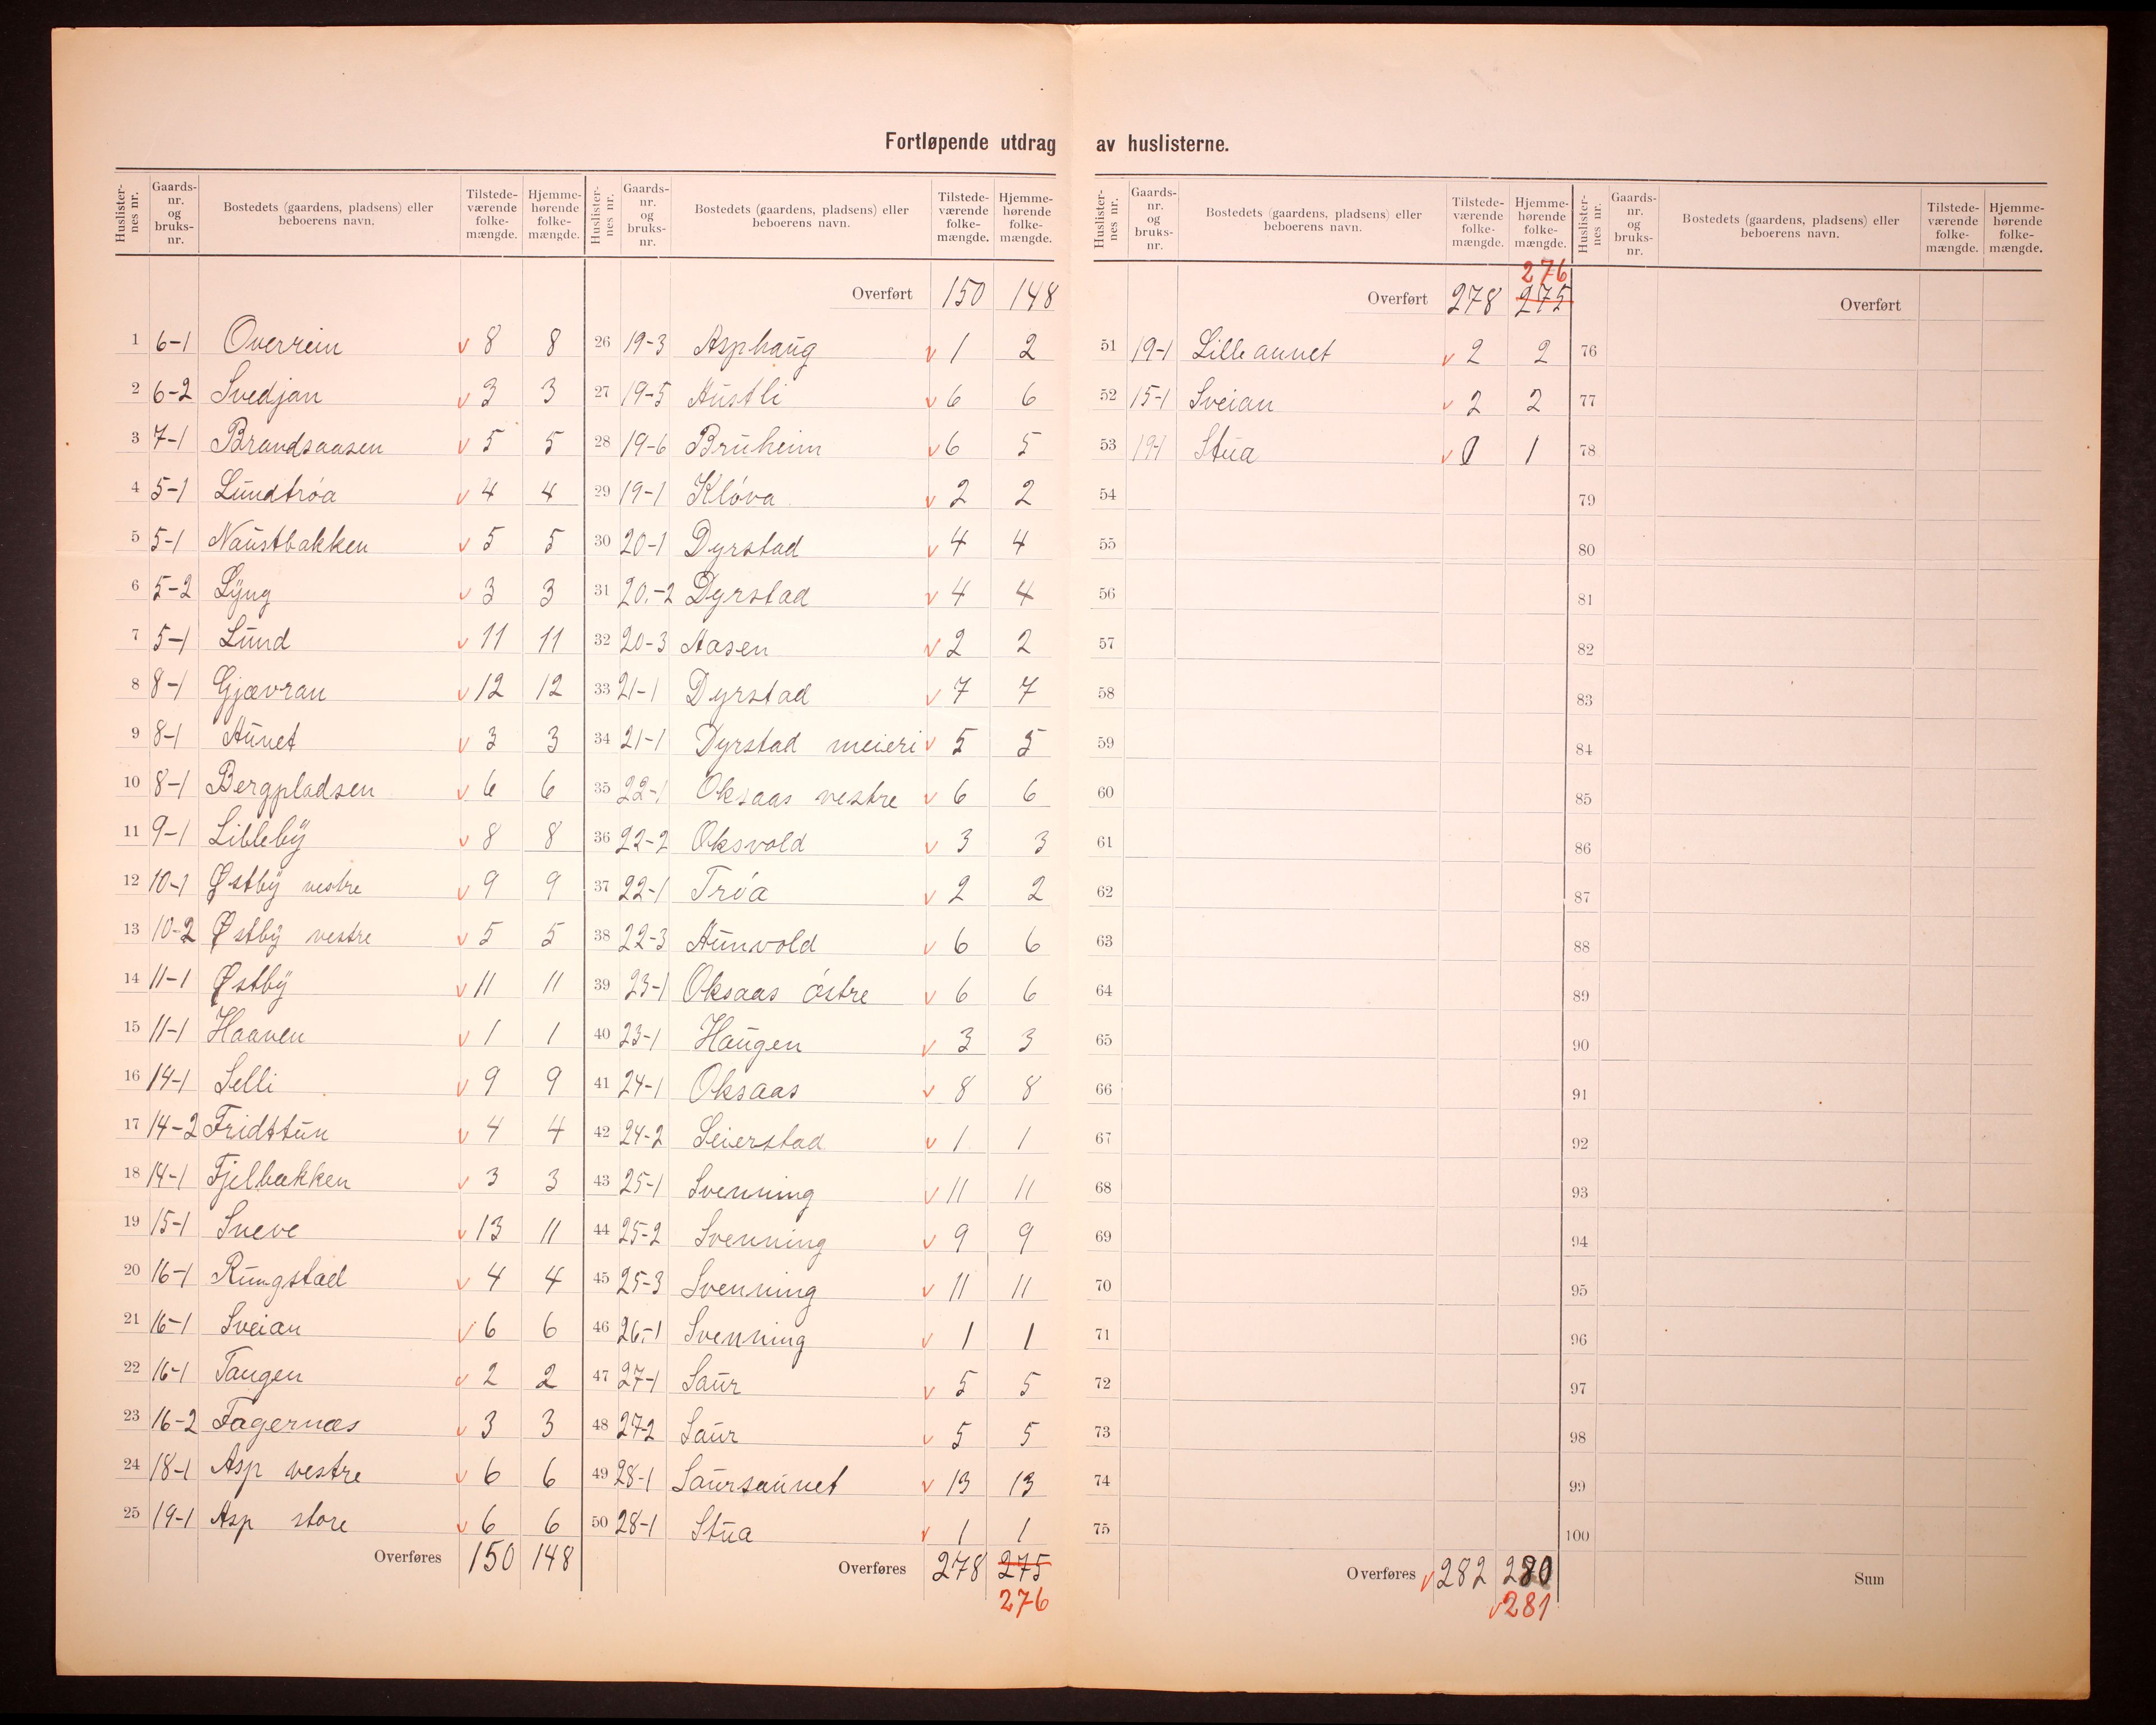 Fortløpende utdrag av huslisterne.
Huslisternes nr. Gaards-nr. og bruks-nr. Bostedets (gaardens, pladsens) eller beboerens navn. Tilstedeværende folkemængde. Hjemmehørende folkemængde.
1 6-1 Overrein v 8 8
2 6-2 Svedjan v 3 3
3 7-1 Brandsaasen v 5 5
4 5-1 Lundtrøa v 4 4
5 5-1 Naustbakken v 5 5
6 5-2 Lyng v 3 3
7 5-1 Lund v 11 11
8 8-1 Gjævran v 12 12
9 8-1 Aunet v 3 3
10 8-1 Bergpladsen v 6 6
11 9-1 Lilleby v 8 8
12 10-1 Østby vestre v 9 9
13 10-2 Østby vestre v 5 5
14 11-1 Østby v 11 11
15 11-1 Haaven v 1 1
16 14-1 Selli v 9 9
17 14-2 Fridttun v 4 4
18 14-1 Fjelbakken v 3 3
19 15-1 Sneve v 13 11
20 16-1 Rungstad v 4 4
21 16-1 Sveian v 6 6
22 16-1 Tangen v 2 2
23 16-2 Fagernæs v 3 3
24 18-1 Asp vestre v 6 6
25 19-1 Asp store v 6 6
Overføres 150 148
Huslisternes nr. Gaards-nr. og bruks-nr. Bostedets (gaardens, pladsens) eller beboerens navn. Tilstedeværende folkemængde. Hjemmehørende folkemængde.
Overført 150 148
26 19-3 Asphaug v 1 2
27 19-5 Austli v 6 6
28 19-6 Bruheim v 6 5
29 19-1 Kløva v 2 2
30 20-1 Dyrstad v 4 4
31 20.-2 Dyrstad v 4 4
32 20-3 Aasen v 2 2
33 21-1 Dyrstad v 7 7
34 21-1 Dyrstad meieri v 5 5
35 22-1 Oksaas vestre v 6 6
36 22-2 Oksvold v 3 3
37 22-1 Trøa v 2 2
38 22-3 Aunvold v 6 6
39 23-1 Oksaas østre v 6 6
40 23-1 Haugen v 3 3
41 24-1 Oksaas v 8 8
42 24-2 Seierstad v 1 1
43 25-1 Svenning v 11 11
44 25-2 Svenning v 9 9
45 25-3 Svenning v 11 11
46 26.-1 Svenning v 1 1
47 27-1 Saur v 5 5
48 27-2 Saur v 5 5
49 28-1 Saursaunet v 13 13
50 28-1 Stua v 1 1
Overføres 278 275
276
Huslisternes nr. Gaards-nr. og bruks-nr. Bostedets (gaardens, pladsens) eller beboerens navn. Tilstedeværende folkemængde. Hjemmehørende folkemængde.
276
Overført 278 275
51 19-1 Lilleaunet v 2 2
52 15-1 Sveian v 2 2
53 19-1 Stua v 0 1
54
55
56
57
58
59
60
61
62
63
64
65
66
67
68
69
70
71
72
73
74
75
Overføres v 282 280
v 281
Huslisternes nr. Gaards-nr. og bruks-nr. Bostedets (gaardens, pladsens) eller beboerens navn. Tilstedeværende folkemængde. Hjemmehørende folkemængde.
Overført
76
77
78
79
80
81
82
83
84
85
86
87
88
89
90
91
92
93
94
95
96
97
98
99
100
Sum